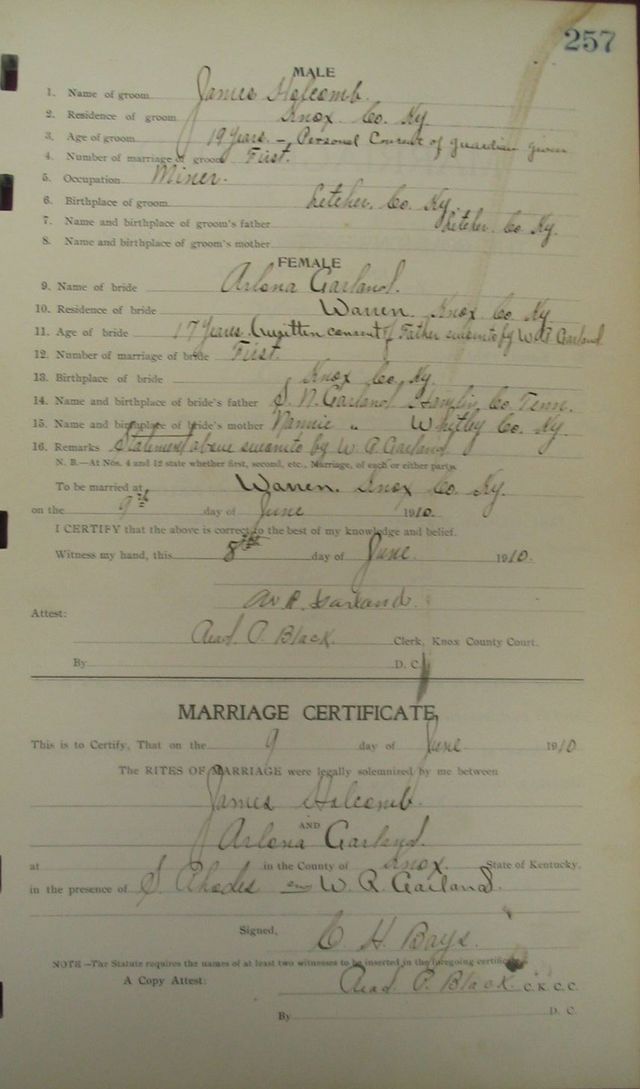 257
MALE
1. Name of groom James Holcomb.
2. Residence of groom Knox Co. Ky
3. Age of groom 19 Years - Personal Consent of guardian given
4. Number of marriage of groom First.
5. Occupation Miner.
6. Birthplace of groom Letcher. Co. Ky.
7. Name and birthplace of groom's father Letcher. Co. Ky.
8. Name and birthplace of groom's mother
FEMALE
9. Name of bride Arlena Garland.
10. Residence of bride Warren. Knox Co Ky
11. Age of bride 17 Years. (written consent of Father by W.R. Garland
12. Number of marriage of bride First.
13. Birthplace of bride Knox Co. Ky.
14. Name and birthplace of bride's father S. N. Garland Hamlin Co. Tenn.
15. Name and birthplace of bride's mother Nannie " Whitley Co. Ky.
16. Remarks Statement above by W. R. Garland
N. B.—At Nos. 4 and 12 state whether first, second, etc., Marriage, of each or either party.
To be married at Warren. Knox Co. Ky.
on the 9th day of June 1910.
I CERTIFY that the above is correct to the best of my knowledge and belief.
Witness my hand, this 8th day of June. 1910.
W R. Garland.
Attest:
Read. P. Black. Clerk, Knox County Court.
By D. C.
MARRIAGE CERTIFICATE
This is to Certify, That on the 9 day of June 1910
The RITES OF MARRIAGE were legally solemnized by me between
James Holcomb.
AND
Arlena Garland.
at in the County of Knox. State of Kentucky.
in the presence of S. Rhodes and W. R. Garland.
Signed, C. H. Bays.
NOTE—The Statute requires the names of at least two witnesses to be inserted in the foregoing certificate.
A Copy Attest: Read. P. Black. C. K. C. C.
By D. C.